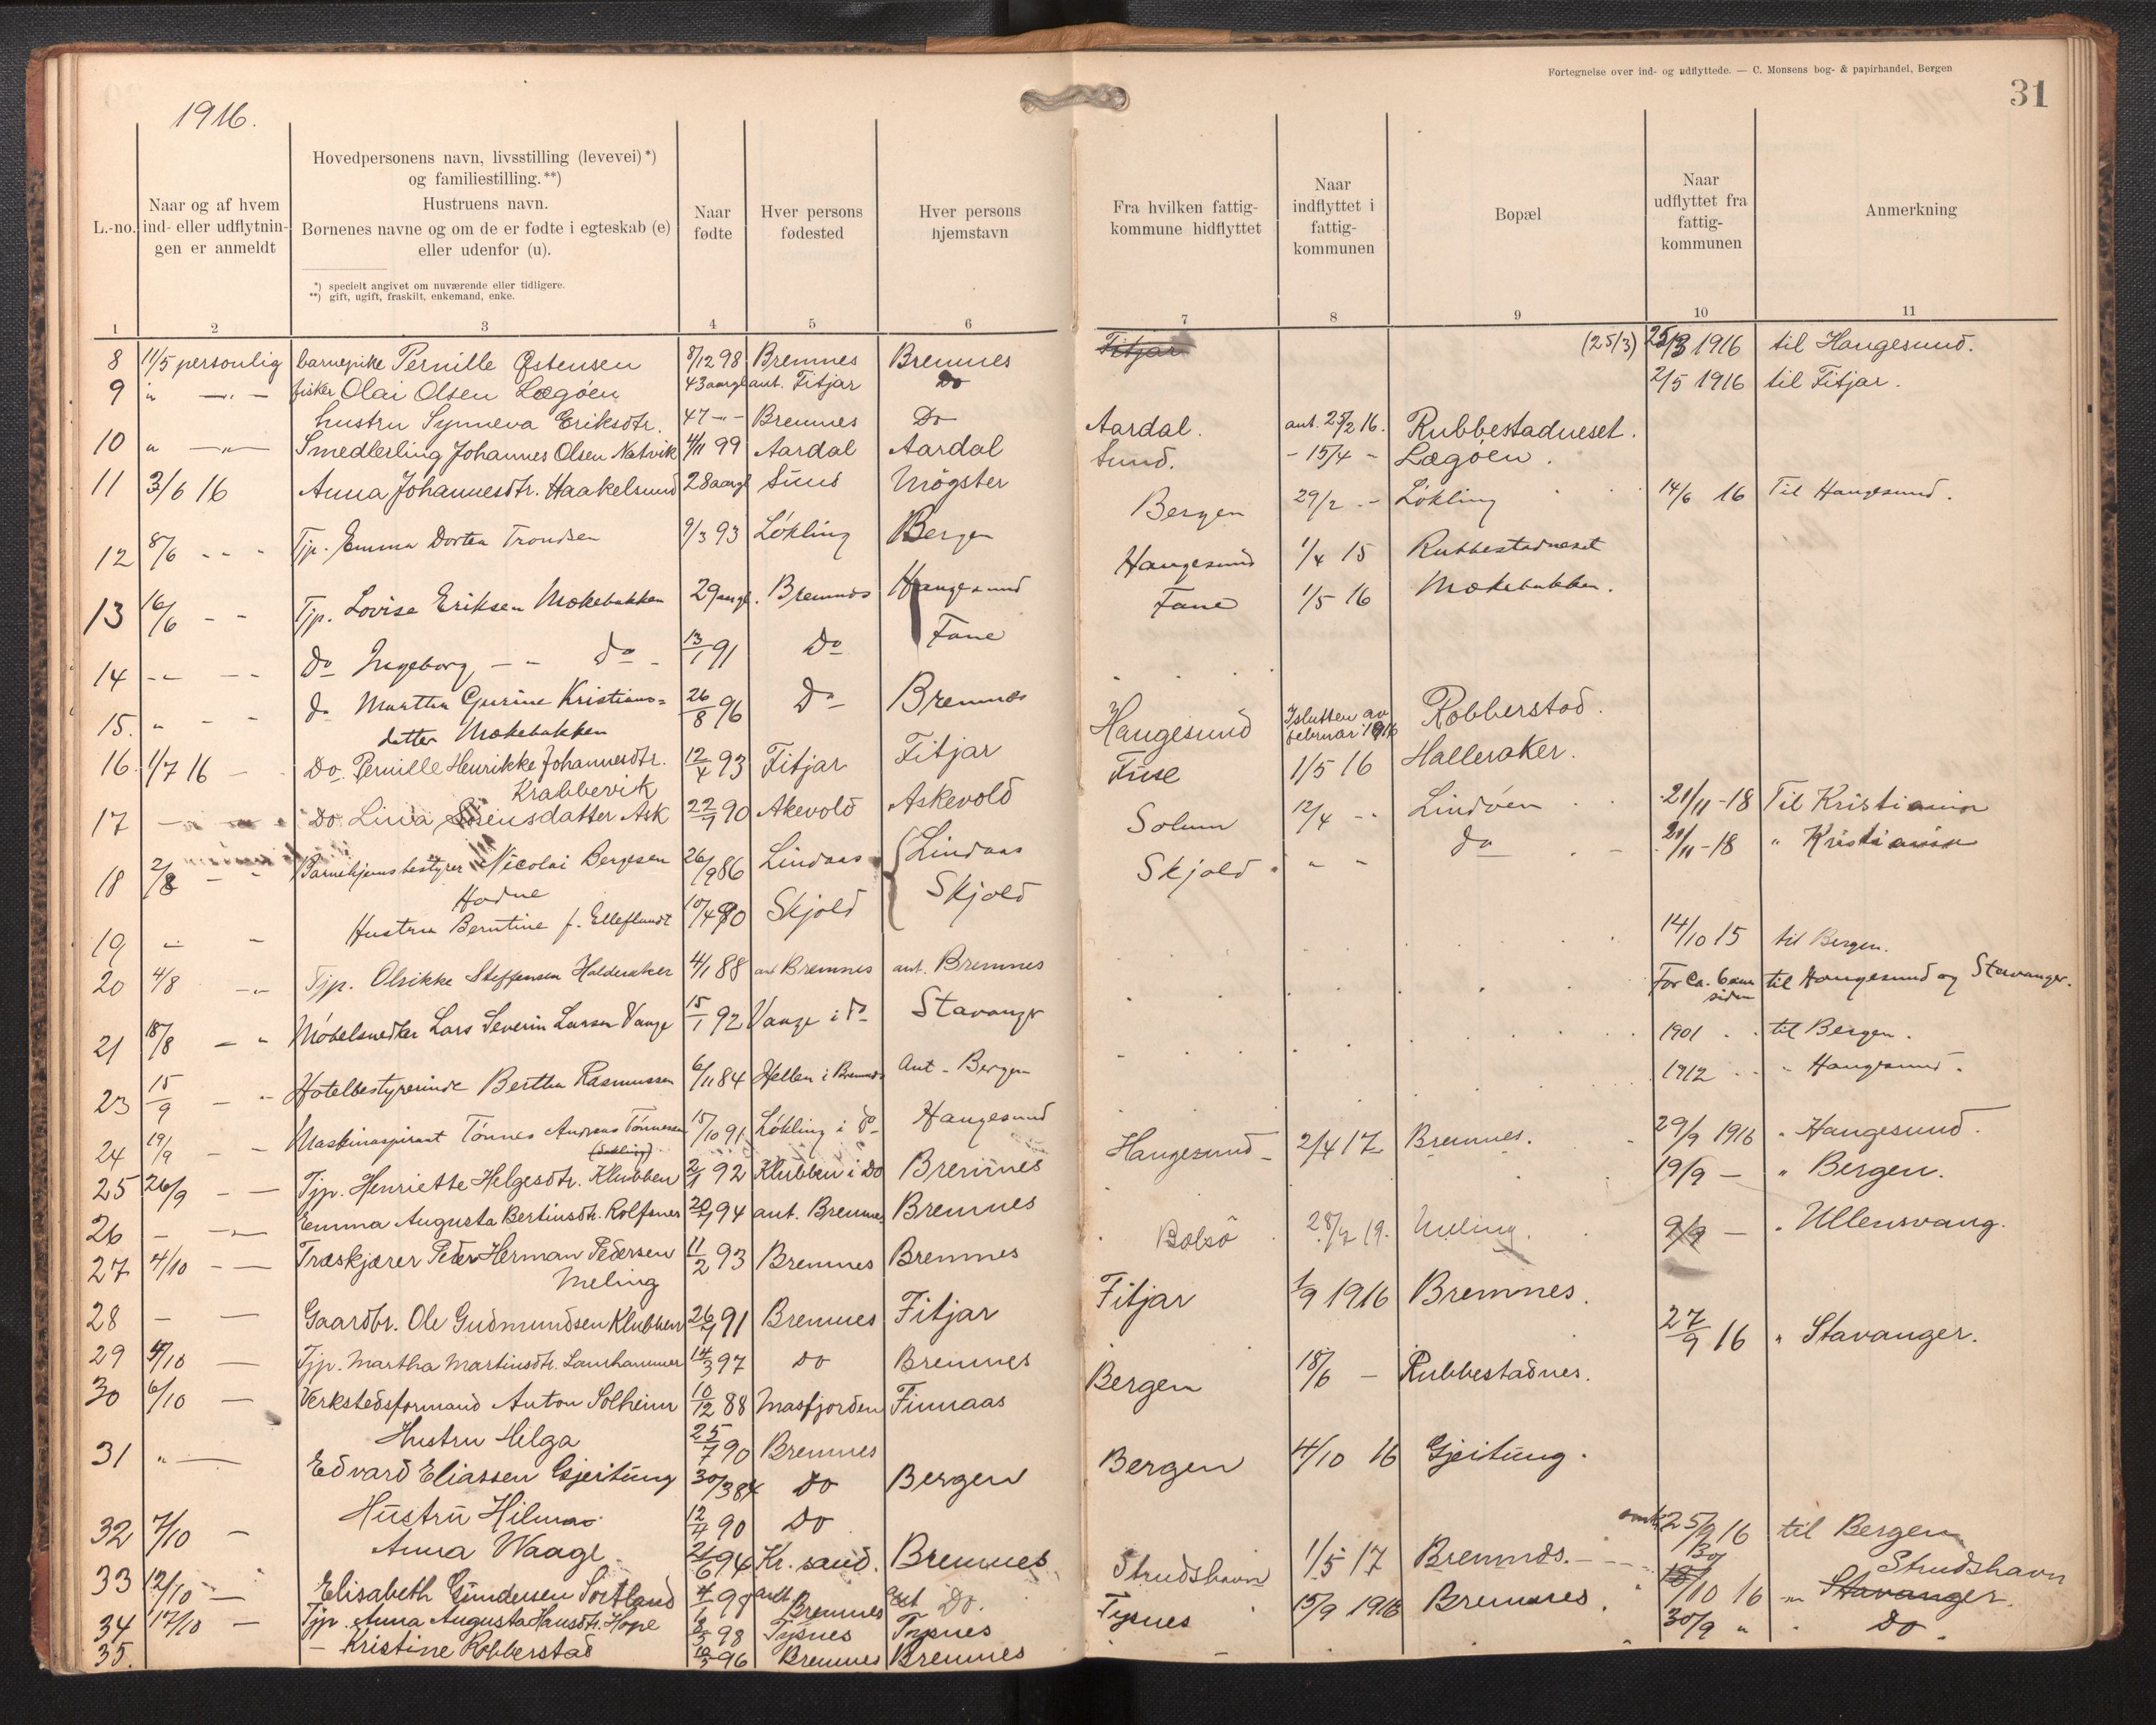 Fortegnelse over ind- og udflyttede. — C. Monsens bog- & papirhandel, Bergen
31
1916.
L.-no.
Naar og af hvem ind- eller udflytnin-gen er anmeldt
Hovedpersonens navn, livsstilling (levevei)*) og familiestilling.**)
Hustruens navn.
Børnenes navne og om de er fødte i egteskab (e) eller udenfor (u).
*) specielt angivet om nuværende eller tidligere.
**) gift, ugift, fraskilt, enkemand, enke.
Naar fødte
Hver persons fødested
Hver persons hjemstavn
Fra hvilken fattig-kommune hidflyttet
Naar indflyttet i fattig-kommunen
Bopæl
Naar udflyttet fra fattig-kommunen
Anmerkning
1 2 3 4 5 6 7 8 9 10 11
8 11/5 personlig barnepike Pernille Østensen 8/12 98 Bremnes Bremnes
9 " —"— fisker Olai Olsen Lægøen 43 aargl ant. Fitjar Do
hustru Synneva Eriksdtr. 47 -"- Bremnes Do
10 " —"— Smedlerling Johannes Olsen Natvik 4/11 99 Aardal Aardal
11 3/6 16 Anna Johannesdtr. Haakelsund 28 aargl Sund Møgster
12 8/6 - - - Tjp. Emma Dortea Trondsen 9/3 93 Løkling Bergen
13 16/6 - - Tjp. Lovise Eriksen Mækebakken 29 aargl. Bremnes Haugesund
14 -- -- Do Ingeborg - - Do - 13/1 91 Do Fane
15. " - - do Martha Gurine Kristians=
datter Mækebakken 26/8 96 Do Bremnes
16. 1/7 16 - Do. Pernille Henrikke Johannesdtr.
Krabbevik 12/4 93 Fitjar Fitjar
17 - Do. Lina Sirensdatter Ask 22/7 90 Akevold Askevold
18 2/8 - - Barnehjemsbestyrer Nicolai Bergesen
Hodne 26/9 86 Lindaas Lindaas
19 " - Hustru Berntine f. Elleflaadt 10/4 90 Skjold Skjold
20 4/8 -"- Tjp. Olrikke Steffensen Halderaker 4/1 88 ant Bremnes ant. Bremnes
21 18/8 - " Møbelsnedker Lars Severin Larsen Vange 15/1 92 Vange i Do Stavanger
23 15/9 - " Hotelbestyrerinde Bertha Rasmussen 6/11 84 Hellen i Bremnes Ant - Bergen
24 19/9 - - Maskinaspirant Tønnes Andreas Tønnesen 15/10 91 Løkling i Do Haugesund
25 26/9 - — Tjp. Henriette Helgesdtr. Klubben 2/1 92 Klubben i Do Bremnes
26 - -"- Emma Augusta Bertinsdtr. Rolfsnes 94 ant. Bremnes Bremnes
27 4/10 - — Træskjærer Peder Herman Pedersen
Meling 11/2 93 Bremnes Bremnes
28 - — Gaardbr. Ole Gudmundsen Klubben 91 Bremnes Fitjar
29 5/10 — Tjp. Martha Martinsdtr. Lamhammer 14/3 97 Do Bremnes
30 6/10 — Verkstedsformand Anton Solheim 10/12 88 Masfjorden Finnaas
Hustru Helga 25/7 90 Bremnes
31 " — Edvard Eliassen Gjeitung 30/3 84 Do Bergen
Hustru Hilma 90 Do
32 7/10 - Anna Waage 21/6 94 Kr. sand. Bremnes
33 12/10 — Elisabeth Gundersen Sortland 98 ant. Bremnes ant Do.
34 17/10 — Tjp. Anna Augusta Hansdtr. Hope 98 Tysnes Tysnes
35. - Kristine Robberstad 96 Bremnes Bremnes
Fitjar (25/3) 25/3 1916 til Haugesund.
2/5 1916 til Fitjar.
Aardal. ant. 25/2 16. Rubbestadneset.
Sund. - 15/4 - Lægøen.
Bergen 29/2 -- Løkling 14/6 16 Til Haugesund.
Haugesund 1/4 15 Rubbestadneset
Fane 1/5 16 Mækebakken.
Haugesund I slutten av februar 1916 Robberstad.
Fuse 1/5 16 Halleraker.
Solum 12/4 -- Lindøen 21/11-18 Til Kristiania
Skjold " - do 21/11-18 " Kristiania
14/10 15 til Bergen.
For ca. 6 aar siden til Haugesund og Stavanger.
1901 til Bergen.
1912 " Haugesund.
Haugesund - 2/4 17 Bremnes. 29/9 1916 " Haugesund.
19/9 — " Bergen.
Bolsø 28/2 19. Meling. 2/9 — " Ullensvang.
Fitjar 1/9 1916 Bremnes.
27/9 16 " Stavanger.
Bergen 18/6 - Rubbestadnes.
Bergen 4/10 16 Gjeitung.
omkr. 25/9 16 til Bergen
Strudshavn 1/5 17 Bremnes. 10 16 -"- Stavanger. Strudshavn
Tysnes 15/9 1916 Bremnes. 30/9 " " Do.